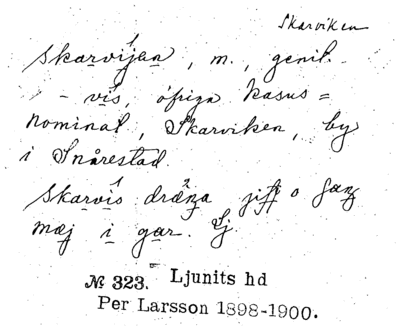 Skarviken
skarvijan, m., genit.
- vis, öfriga kasus =
nominat, Skarviken, by
i Snårestad.
skarvis dräŋa jift o
mæj i gar. Lj.
№ 323. Ljunits hd
Per Larsson 1898-1900.